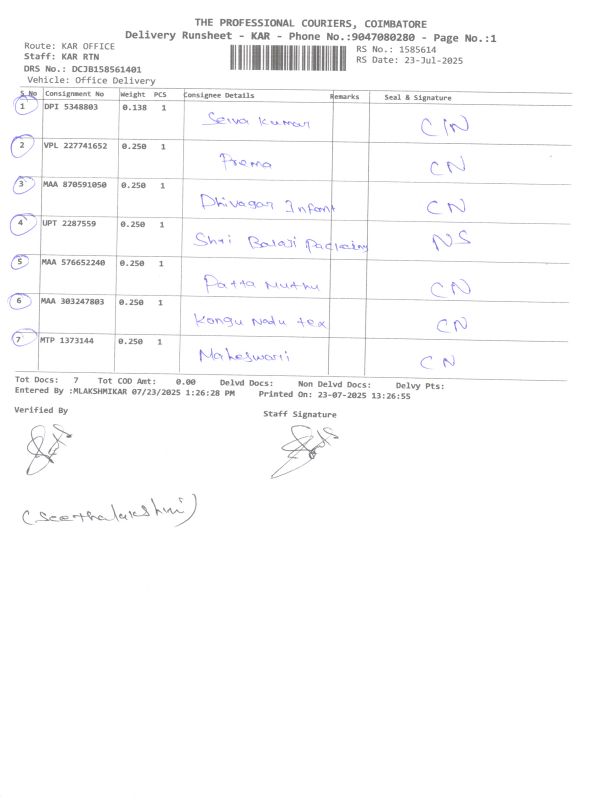 THE PROFESSIONAL COURIERS, COIMBATORE
Delivery Runsheet - KAR - Phone No.:9047080280 - Page No.:1
Route: KAR OFFICE
RS No.: 1585614
Staff: KAR RTN
RS Date: 23-Jul-2025
DRS No.: DCJB158561401
Vehicle: Office Delivery
S No Consignment No Weight PCS Consignee Details Remarks Seal & Signature
1 DPI 5348803 0.138 1 Selva Kumar CN
2 VPL 227741652 0.250 1 Prema CN
3 MAA 870591050 0.250 1 Dhivagar Infant CN
4 UPT 2287559 0.250 1 Shri Balaji Packeing NS
5 MAA 576652240 0.250 1 Patta Muthu CN
6 MAA 303247803 0.250 1 Kongu Nadu tex CN
7 MTP 1373144 0.250 1 Maheswari CN
Tot Docs: 7 Tot COD Amt: 0.00 Delvd Docs: Non Delvd Docs: Delvy Pts:
Entered By :MLAKSHMIKAR 07/23/2025 1:26:28 PM Printed On: 23-07-2025 13:26:55
Verified By Staff Signature
(Seethalakshmi)